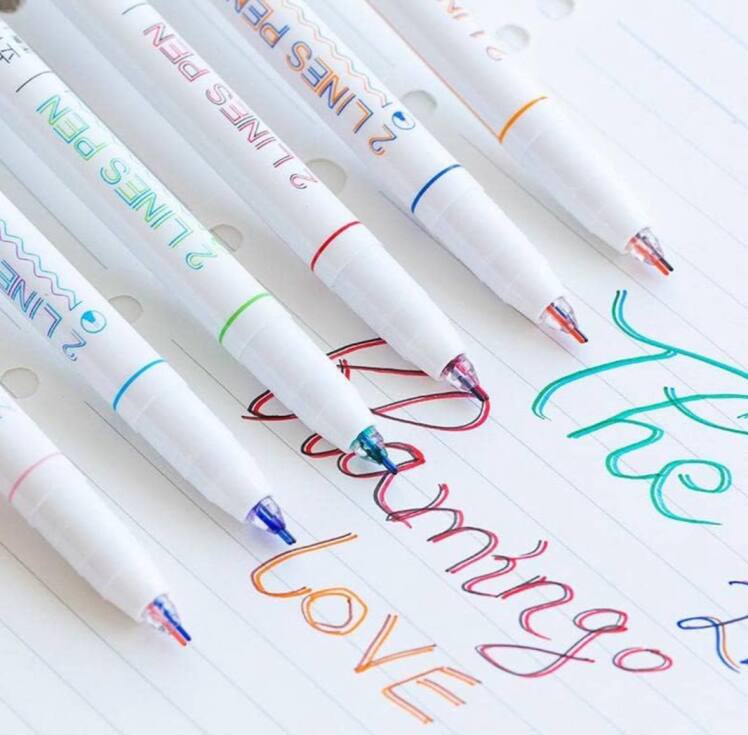 2 LINES PEN
2 LINES PEN
2 LINES PEN
2 LINE
The
LOVE